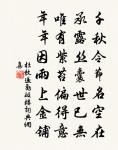 千秋令節名空在
承露絲囊世已無
唯有紫苔偏得意
年年因雨上金鋪
杜牧過勤政樓